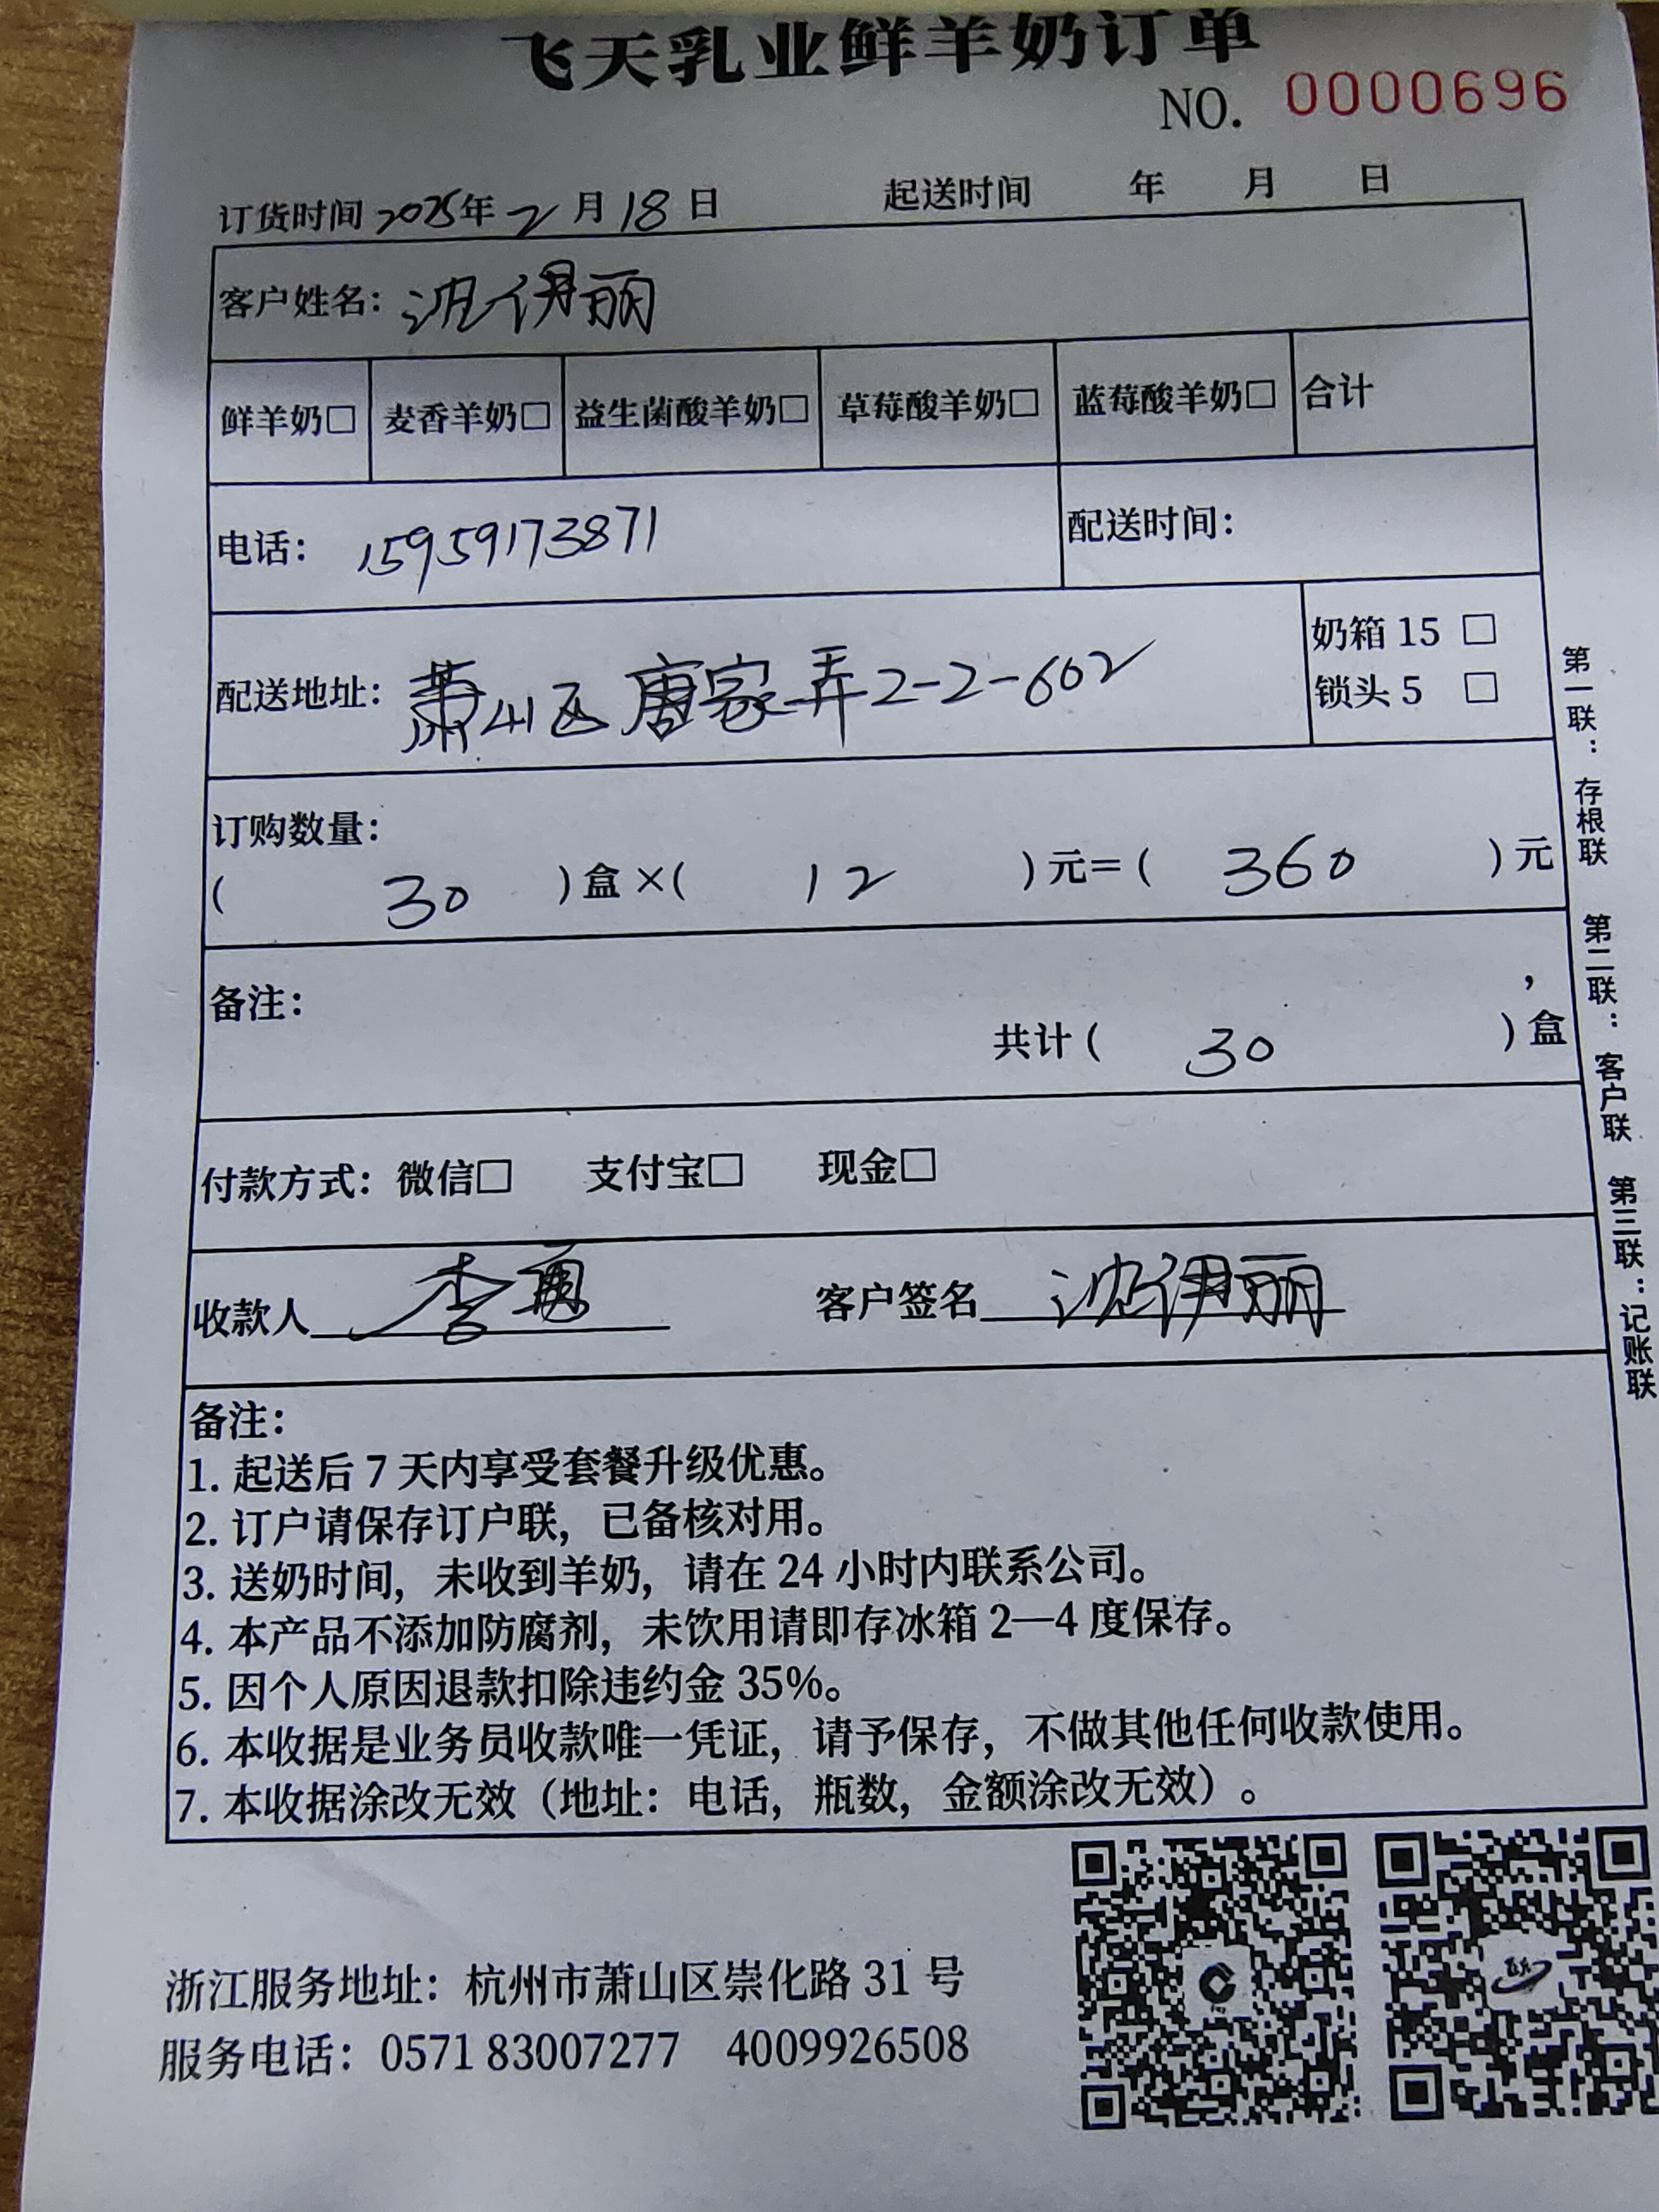 飞天乳业鲜羊奶订单
NO. 0000696
订货时间 2025年 2 月 18 日 起送时间 年 月 日
客户姓名： 沈伊丽
鲜羊奶□ 麦香羊奶□ 益生菌酸羊奶□ 草莓酸羊奶□ 蓝莓酸羊奶□ 合计
电话： 15959173871 配送时间：
配送地址： 萧山区唐家弄2-2-602
奶箱 15 □
锁头 5 □
订购数量：
( 30 ) 盒 ×( 12 ) 元＝( 360 ) 元
备注： ，
共计 ( 30 ) 盒
付款方式：微信□ 支付宝□ 现金□
收款人 李勇 客户签名 沈伊丽
备注：
1. 起送后 7 天内享受套餐升级优惠。
2. 订户请保存订户联，已备核对用。
3. 送奶时间，未收到羊奶，请在 24 小时内联系公司。
4. 本产品不添加防腐剂，未饮用请即存冰箱 2—4 度保存。
5. 因个人原因退款扣除违约金 35%。
6. 本收据是业务员收款唯一凭证，请予保存，不做其他任何收款使用。
7. 本收据涂改无效（地址：电话，瓶数，金额涂改无效）。
第一联：存根联 第二联：客户联 第三联：记账联
浙江服务地址：杭州市萧山区崇化路 31 号
服务电话：0571 83007277 4009926508